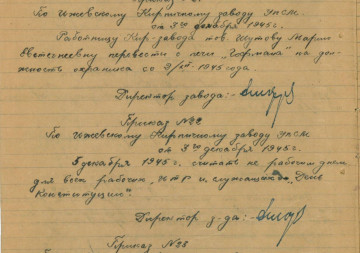 По Ижевскому Кирпичному заводу УПСМ
от 3го декабря 1945г.
Работницу Кир-завода тов. Шутову Марию
Евстегнеевну перевести с печи "Гофмана" на дол-
жность охранника со 3/XII-1945 года.
Директор завода:-
Приказ №22
По Ижевскому Кирпичному заводу УПСМ
от 3го декабря 1945г.
5 декабря 1945г. считать не рабочим днем
для всех рабочих, ИТР и служащих "День
Конституции".
Директор з-да:-
Приказ №23